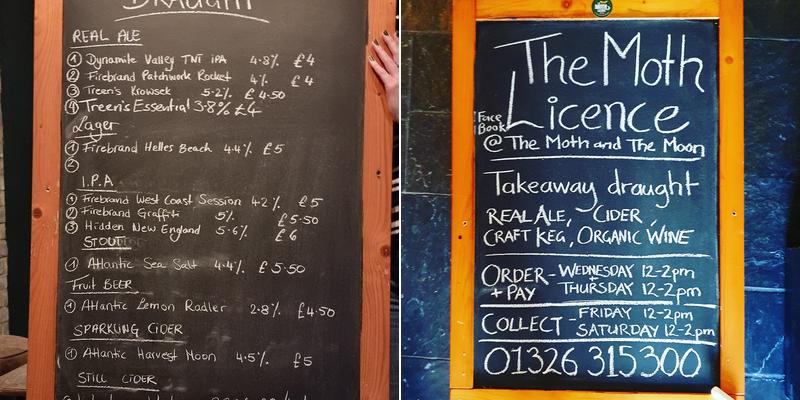 DRAUGHT
REAL ALE
① Dynamite Valley TNT IPA 4.8% £4
② Firebrand Patchwork Rocket 4% £4
③ Treen's Krowsek 5.2% £4.50
④ Treen's Essential 3.8% £4
Lager
① Firebrand Helles Beach 4.4% £5
②
I.P.A
① Firebrand West Coast Session 4.2% £5
② Firebrand Graffiti 5% £5.50
③ Hidden New England 5.6% £6
STOUT
① Atlantic Sea Salt 4.4% £5.50
Fruit BEER
① Atlantic Lemon Radler 2.8% £4.50
SPARKLING CIDER
① Atlantic Harvest Moon 4.5% £5
STILL CIDER
The Moth
Licence
Face
Book
@ The Moth and The Moon
Takeaway draught
REAL ALE, CIDER,
CRAFT KEG, ORGANIC WINE
ORDER - WEDNESDAY 12-2pm
+ PAY THURSDAY 12-2pm
COLLECT - FRIDAY 12-2pm
SATURDAY 12-2pm
01326 315300